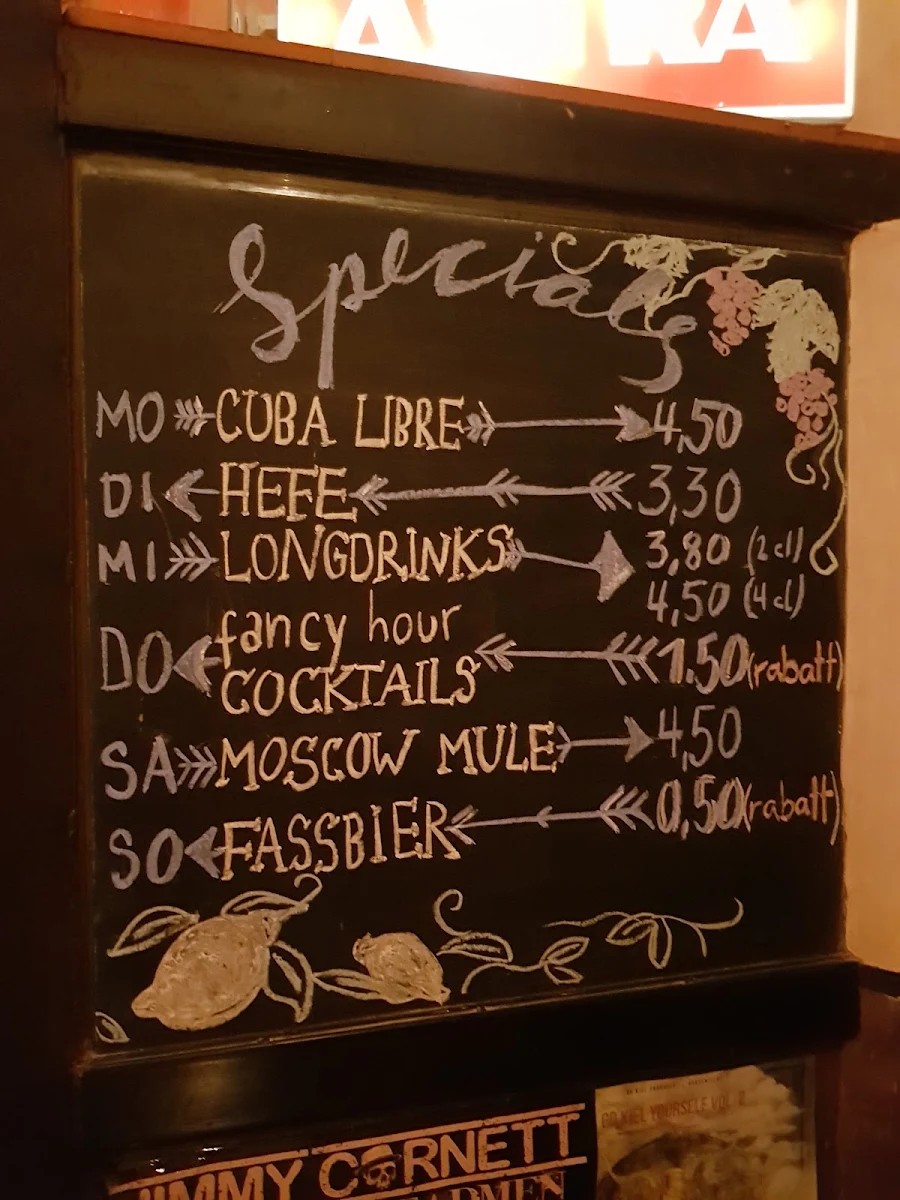 Specials
MO CUBA LIBRE 4,50
DI HEFE 3,30
MI LONGDRINKS 3,80 (2 cl)
4,50 (4 cl)
DO fancy hour
COCKTAILS 1.50 (rabatt)
SA MOSCOW MULE 4,50
SO FASSBIER 0,50 (rabatt)
JIMMY CORNETT
YOURSELF VOL. 2